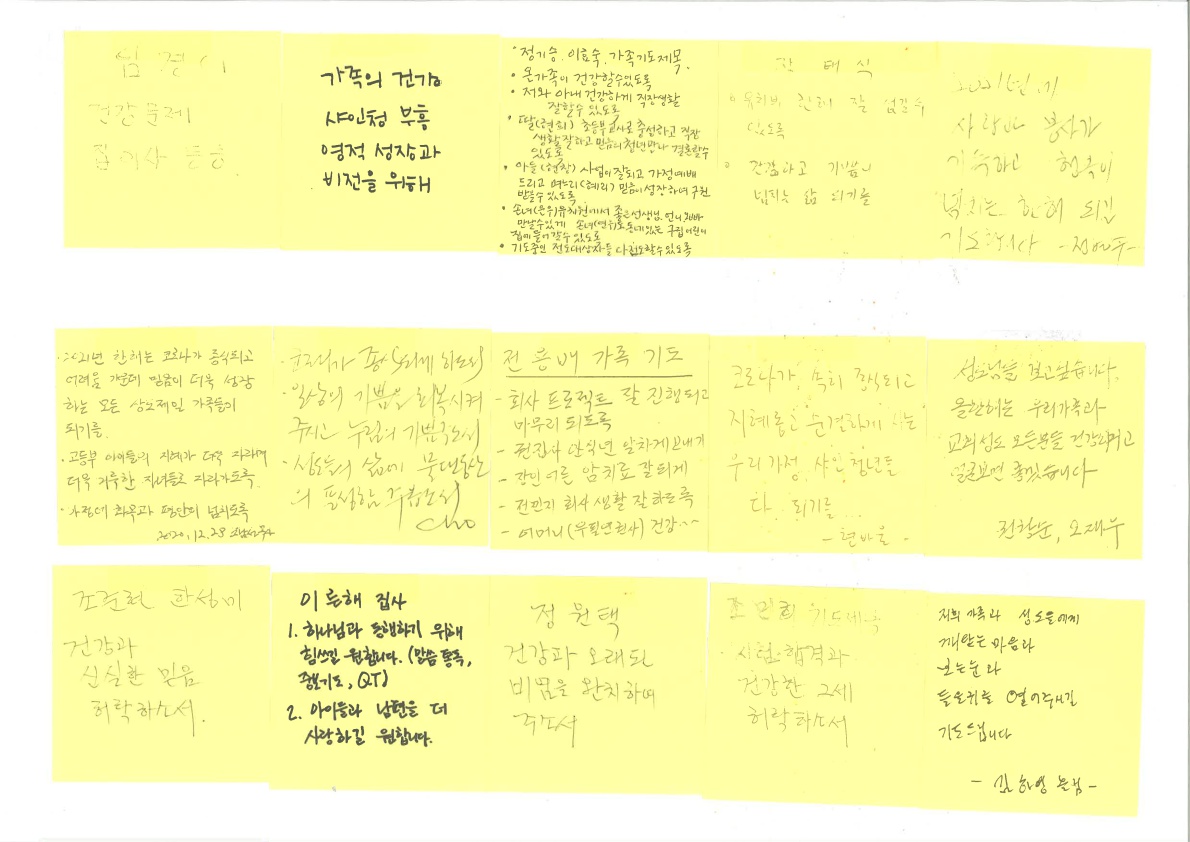 건강문제
가족의 건강
샤인청 부흥
영적 성장과
비전을 위해
· 정기승, 이효숙, 가족기도제목.
· 온가족이 건강할수있도록
· 저와 아내 건강하게 직장생활
잘할수 있도록
· 딸(현희) 초등부 교사로 충성하고 직장
생활 잘하고 믿음의 청년만나 결혼할수
있도록
· 아들(현창) 사업이 잘되고 가정예배
드리고 며느리(혜리) 믿음이 성장하여 구원
받을수 있도록
· 손녀(은우)유치원에서 좋은선생님, 언니오빠
만날수있게 손녀(연우) 동네있는 구립어린이
집에 들어갈수 있도록
· 기도중인 전도대상자들 다 전도할수있도록
전 태 식
· 유치부, 찬례 잘 섬길수
있도록
· 건강하고 기쁨이
넘치는 삶 되기를
2021년에
사랑과 봉사가
가득하고 행복이
넘치는 한해 되길
기도합니다
· 2021년 한해는 코로나가 종식되고
어려움 가운데 믿음이 더욱 성장
하는 모든 상도제일 가족들이
되기를.
· 고등부 아이들의 지혜가 더욱 자라며
더욱 거룩한 자녀들로 자라가도록.
· 가정에 화목과 평안이 넘치도록
2020.12.28
· 코로나가 종식되게 하소서
· 일상의 기쁨을 회복시켜
주시고 누림의 기쁨 주소서
· 성도들의 삶에
의 풍성함 주옵소서
Cho
전 용 배 가족 기도
- 회사 프로젝트 잘 진행되고
마무리 되도록
- 안식년 알차게 보내기
- 장인어른 암치료 잘되게
- 전민지 회사생활 잘 하도록
- 어머니 (우필연권사) 건강~~
코로나가 속히 종식되고
지혜롭고 순결하게 사는
우리가정, 샤인청년들
다 되기를...
성도님들 보고싶습니다.
올한해는 우리가족과
교회성도 모든분들 건강하시고
얼굴보면 좋겠습니다
전철순, 오재우
조준현 한성미
건강과
신실한 믿음
허락하소서.
이 은혜 집사
1. 하나님과 동행하기 위해
힘쓰길 원합니다. (말씀 통독,
중보기도, QT)
2. 아이들과 남편을 더
사랑하길 원합니다.
정 원 택
건강과 오래된
비염을 완치하여
주소서
조 민희 기도제목
· 시험 합격과
건강한 2세
허락하소서
저희 가족과 성도들에게
깨닫는 마음과
보는눈과
듣는귀를 열어주시길
기도드립니다
- 김 하영 드림 -